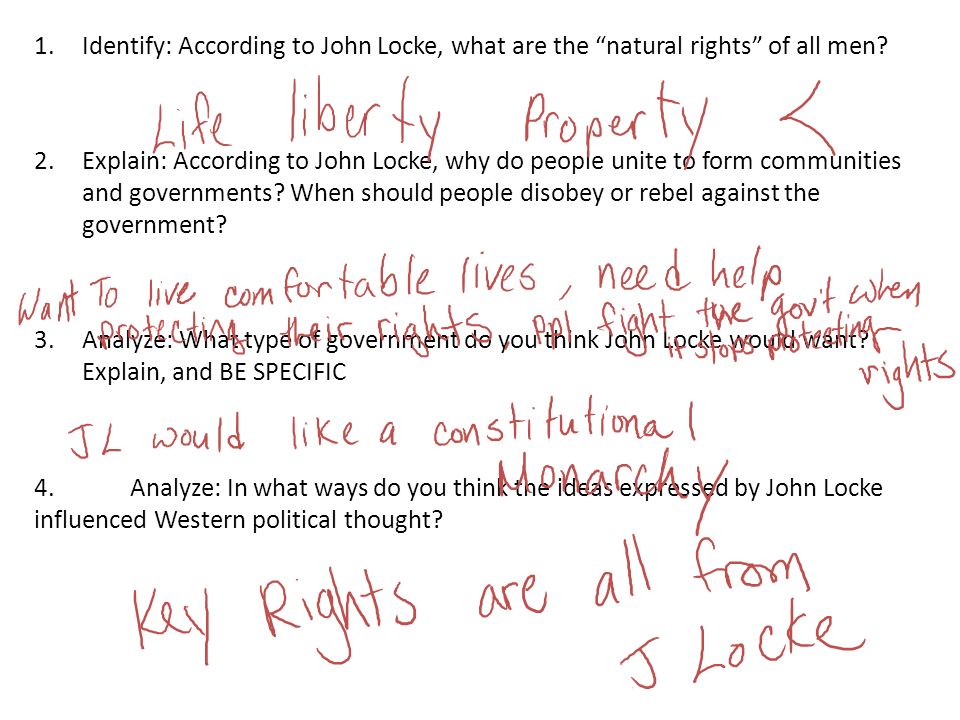 1. Identify: According to John Locke, what are the “natural rights” of all men?
Life liberty Property <
2. Explain: According to John Locke, why do people unite to form communities
and governments? When should people disobey or rebel against the
government?
Want To live comfortable lives, need help
protecting their rights, ppl fight the gov't when
it stops protecting
rights
3. Analyze: What type of government do you think John Locke would want?
Explain, and BE SPECIFIC
JL would like a constitutional
Monarchy
4. Analyze: In what ways do you think the ideas expressed by John Locke
influenced Western political thought?
Key Rights are all from
J Locke